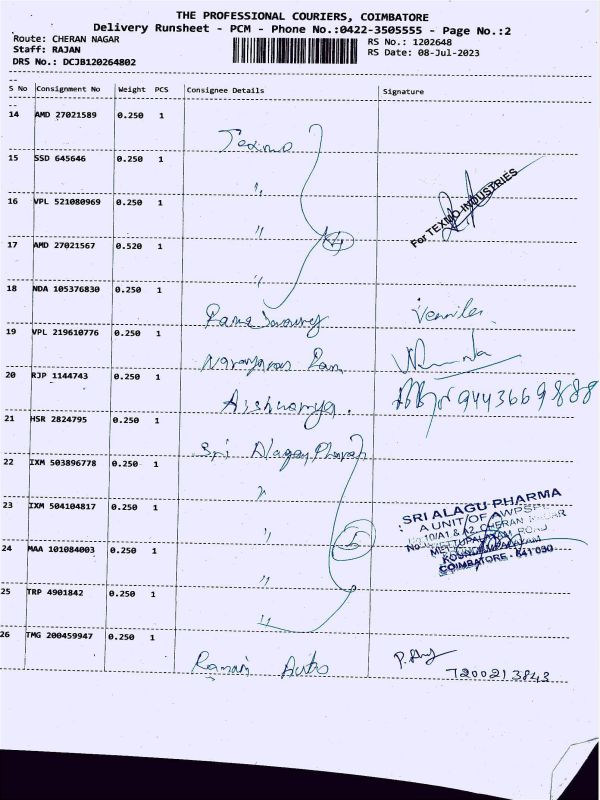 THE PROFESSIONAL COURIERS, COIMBATORE
Delivery Runsheet - PCM - Phone No.:0422-3505555 - Page No.:2
Route: CHERAN NAGAR
RS No.: 1202648
Staff: RAJAN
RS Date: 08-Jul-2023
DRS No.: DCJB120264802
S No Consignment No Weight PCS Consignee Details Signature
14 AMD 27021589 0.250 1
Texmo
15 SSD 645646 0.250 1
"
16 VPL 521080969 0.250 1
"
For TEXMO INDUSTRIES
17 AMD 27021567 0.520 1
4
"
18 NDA 105376830 0.250 1
Rama
19 VPL 219610776 0.250 1
Narayanan Ram
20 RJP 1144743 0.250 1
Aishwarya. 9443669888
21 HSR 2824795 0.250 1
Sri Alagu Pharma
22 IXM 503896778 0.250 1
"
23 IXM 504104817 0.250 1
"
SRI ALAGU PHARMA
A UNIT OF AWPSPL
No.10/A1 & A2, CHERAN NAGAR
METTUPALAYAM ROAD
COIMBATORE - 641 030
24 MAA 101084003 0.250 1
5
"
25 TRP 4901842 0.250 1
"
26 TMG 200459947 0.250 1
Ramani Auto
7200213843